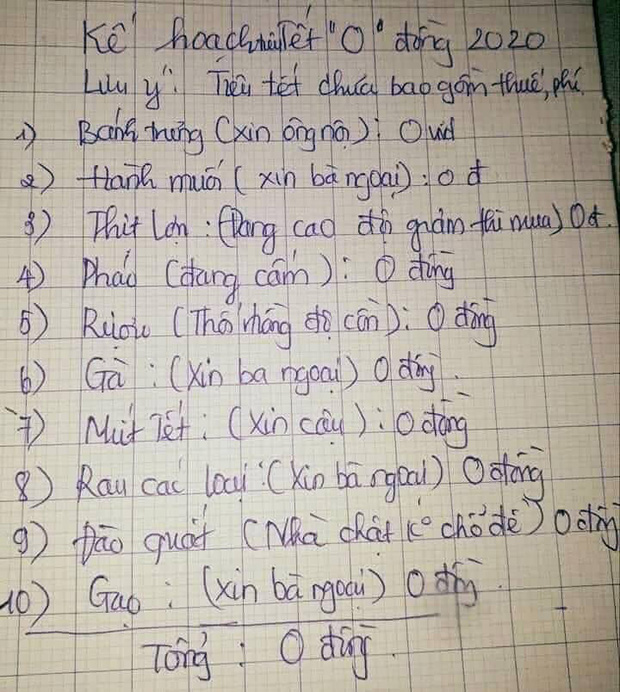 Kế hoạch tiêu Tết "0" đồng 2020
Lưu ý: Tiêu tết chưa bao gồm thuế, phí
1) Bánh trưng (xin ông nội): 0 vnd
2) Hành muối (xin bà ngoại): 0 đ
3) Thịt Lợn: (Đang cao đợi giảm thì mua) 0đ.
4) Pháo (đang cấm): 0 đồng
5) Rượu (Thổi nồng độ cồn): 0 đồng
6) Gà: (Xin bà ngoại) 0 đồng.
7) Mứt Tết: (Xin cậu): 0 đồng
8) Rau các loại: (Xin bà ngoại) 0 đồng
9) Đào quất (Nhà chật k° chỗ để) 0 đồng
10) Gạo: (xin bà ngoại) 0 đồng.
Tổng: 0 đồng.